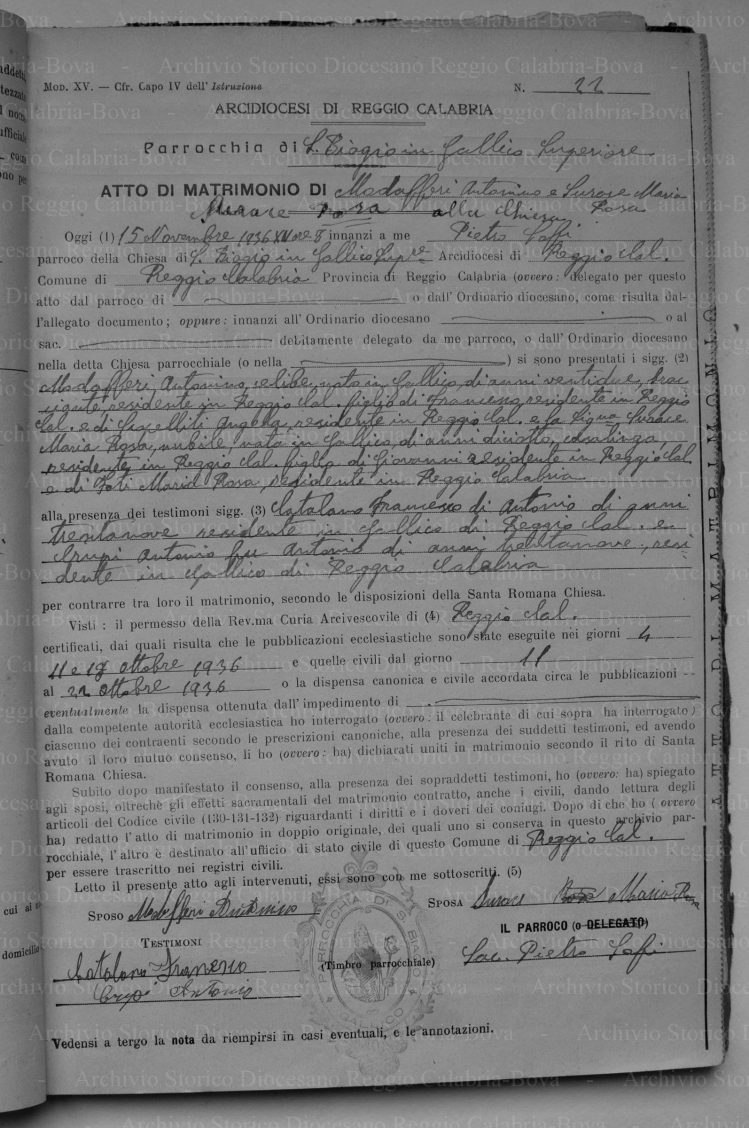 Mod. XV. — Cfr. Capo IV dell'Istruzione N. 22
ARCIDIOCESI DI REGGIO CALABRIA
Parrocchia di S. Biagio in Gallico Superiore
ATTO DI MATRIMONIO DI Madafferi Antonino e Surace Maria
Surace Rosa alla Chiesa Rosa
Oggi (1) 15 Novembre 1936 XV ore 8 innanzi a me Pietro
parroco della Chiesa di S. Biagio in Gallico Sup.re Arcidiocesi di Reggio Cal.
Comune di Reggio Calabria Provincia di Reggio Calabria (ovvero: delegato per questo
atto dal parroco di o dall'Ordinario diocesano, come risulta dal-
l'allegato documento; oppure: innanzi all'Ordinario diocesano o al
sac. debitamente delegato da me parroco, o dall'Ordinario diocesano
nella detta Chiesa parrocchiale (o nella ) si sono presentati i sigg. (2)
Madafferi Antonino, celibe, nato in Gallico, di anni ventidue, brac
ciante, residente in Reggio Cal. figlio di Francesco, residente in Reggio
Cal. e di Angela, residente in Reggio Cal. e la Sig.na Surace
Maria Rosa, nubile, nata in Gallico, di anni diciotto, casalinga,
residente in Reggio Cal. figlia di Giovanni residente in Reggio Cal.
e di Foti Maria Rosa, residente in Reggio Calabria
alla presenza dei testimoni sigg. (3) Catalano Francesco di Antonio di anni
trentanove residente in Gallico di Reggio Cal. e
Crupi Antonio fu Antonio di anni trentanove, resi
dente in Gallico di Reggio Calabria
per contrarre tra loro il matrimonio, secondo le disposizioni della Santa Romana Chiesa.
Visti: il permesso della Rev.ma Curia Arcivescovile di (4) Reggio Cal.
certificati, dai quali risulta che le pubblicazioni ecclesiastiche sono state eseguite nei giorni 4
11 e 18 ottobre 1936 e quelle civili dal giorno 11
al 22 ottobre 1936 o la dispensa canonica e civile accordata circa le pubblicazioni --
eventualmente la dispensa ottenuta dall'impedimento di
dalla competente autorità ecclesiastica ho interrogato (ovvero: il celebrante di cui sopra ha interrogato)
ciascuno dei contraenti secondo le prescrizioni canoniche, alla presenza dei suddetti testimoni, ed avendo
avuto il loro mutuo consenso, li ho (ovvero: ha) dichiarati uniti in matrimonio secondo il rito di Santa
Romana Chiesa.
Subito dopo manifestato il consenso, alla presenza dei sopraddetti testimoni, ho (ovvero: ha) spiegato
agli sposi, oltreché gli effetti sacramentali del matrimonio contratto, anche i civili, dando lettura degli
articoli del Codice civile (130-131-132) riguardanti i diritti e i doveri dei coniugi. Dopo di che ho (ovvero
ha) redatto l'atto di matrimonio in doppio originale, dei quali uno si conserva in questo archivio par-
rocchiale, l'altro è destinato all'ufficio di stato civile di questo Comune di Reggio Cal.
per essere trascritto nei registri civili.
Letto il presente atto agli intervenuti, essi sono con me sottoscritti. (5)
SPOSO Madafferi Antonino SPOSA Surace Rosa Maria Rosa
TESTIMONI IL PARROCO (o DELEGATO)
Catalano Francesco (Timbro parrocchiale) Sac. Pietro
Crupi Antonio
PARROCCHIA DI S. BIAGIO
GALLICO
Vedensi a tergo la nota da riempirsi in casi eventuali, e le annotazioni.
ATTO DI MATRIMONIO
Archivio Storico Diocesano Reggio Calabria-Bova